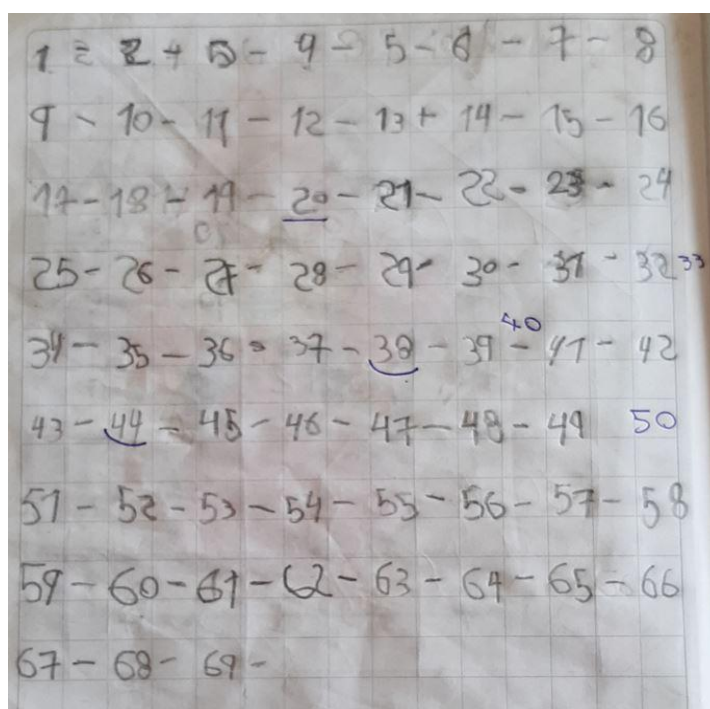 1 = 2 + 3 - 4 - 5 - 6 - 7 - 8
9 - 10 - 11 - 12 - 13 + 14 - 15 - 16
17 - 18 - 19 - 20 - 21 - 22 - 23 - 24
25 - 26 - 27 - 28 - 29 - 30 - 31 - 32 33
34 - 35 - 36 - 37 - 38 - 39 - 40 41 - 42
43 - 44 - 45 - 46 - 47 - 48 - 49 50
51 - 52 - 53 - 54 - 55 - 56 - 57 - 58
59 - 60 - 61 - 62 - 63 - 64 - 65 - 66
67 - 68 - 69 -